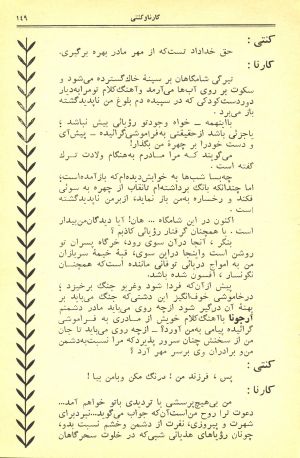 کارنا و کنتی ۱۴۹
کنتی :
حق خداداد تست که از مهر مادر بهره برگیری.
کارنا :
تیرگی شامگاهان بر سینهٔ خاک گسترده می‌شود و
سکوت بر روی آب‌ها می‌آرمد و آهنگ کلام تو مرا به دیار
دوردست کودکی که در سپیده دم بلوغ من ناپدید گشته
باز می‌برد.
با اینهمه - خواه وجود تو رؤیائی بیش نباشد ؛
یا جزئی باشد از حقیقتی به فراموشی گرائیده - پیش آی
و دست خود را بر چهرهٔ من بگذار!
می‌گویند که مرا مادرم به هنگام ولادت ترك
گفته است .
چه بسا شب‌ها به خوابش دیده‌ام که باز آمده است؛
اما چندانکه بانگ برداشته‌ام تا نقاب از چهره به سوئی
فکند و رخساره به من باز نماید، از برم ناپدید گشته
است .
اکنون در این شامگاه ... هان! آیا دیدگان من بیدار
است . یا همچنان گرفتار رؤیائی کاذبم ؟
بنگر ، آنجا در آن سوی رود، خرگاه پسران تو
روشن است و اینجا در این سوی، قبهٔ خیمهٔ سربازان
من به امواج دریائی توفانی ماننده است که همچنان
نگونسار ، افسون شده باشد .
پیش از آن که فردا شور و غریو جنگ برخیزد ؛
در خاموشی خوف‌انگیز این دشتی که جنگ می‌باید بر
پهنهٔ آن درگیر شود از چه روی می‌باید مادر دشمنم
آرجونا با آهنگ کلام خویش از مادری به فراموشی
گرائیده پیامی به من آورد؟ - از چه روی می‌باید تا جان
من از سخنش چنان سرور پذیرد که مرا نسبت به دشمن
من و برادران وی بر سر مهر آرد ؟
کنتی :
پس ، فرزند من ! درنگ مکن و با من بیا !
کارنا :
من بی هیچ پرسشی یا تردیدی با تو خواهم آمد...
دعوت ترا روح من است آن که جواب می‌گوید...نبرد برای
شهرت و پیروزی، نفرت از دشمن و خشم نسبت بدو،
چونان رؤیاهای هذیانی شبی که در خلوت سحرگاهان